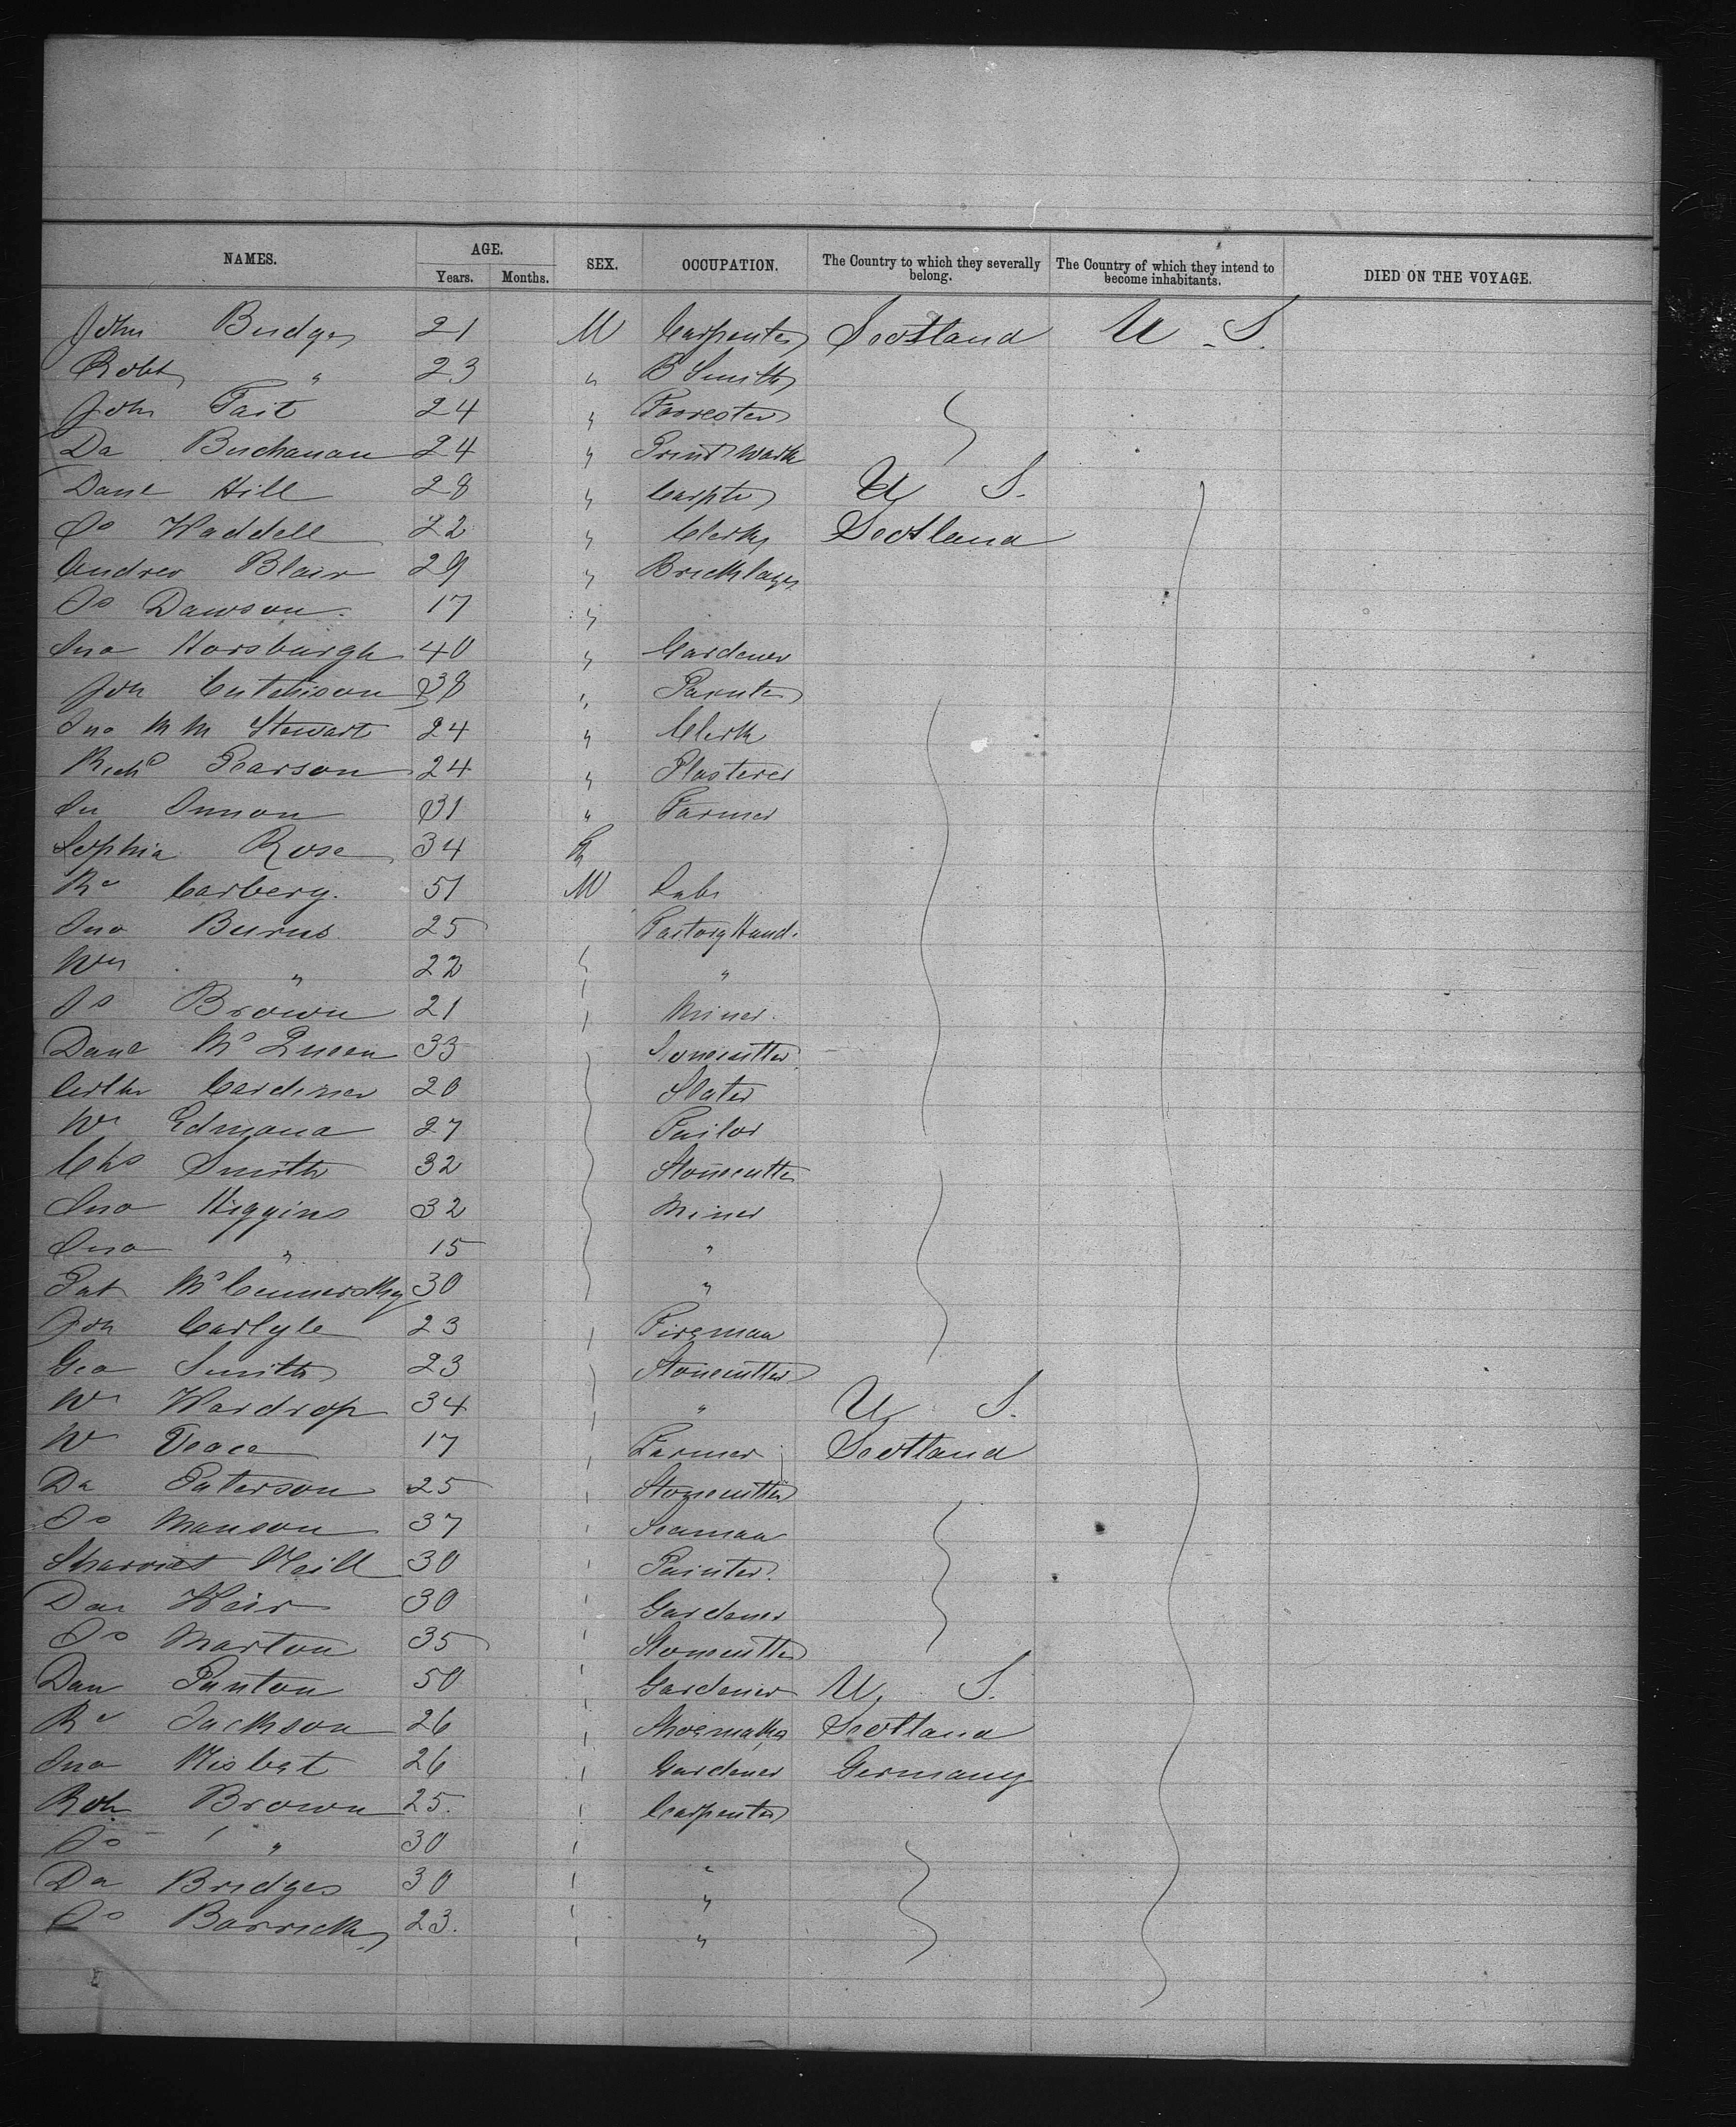 NAMES. AGE. SEX. OCCUPATION. The Country to which they severally belong. The Country of which they intend to become inhabitants. DIED ON THE VOYAGE.
Years. Months.
John Budge 21 M Carpenter Scotland U.S.
Robt " 23 " B Smith
John Tait 24 " Forrester
Da Buchanan 24 " Print Work
Danl Hill 28 " Carptr U S.
Js Waddell 22 " Clerk Scotland
Andrew Blair 29 " Bricklayer
Js Dawson 17 "
Jno Horsburgh 40 " Gardener
Joh Cutchison 38 " Painter
Jno M M Stewart 24 " Clerk
Richd Pearson 24 " Plasterer
31 " Farmer
Sophia Rose 34 F
Rt Carbery. 51 M Labr
Jno Burns 25 Factory Hand.
Wm " 22 "
Js Brown 21 Miner.
Danl McQueen 33 Stonecutter
Arthr Gardiner 20 Slater
Wm Edmond 27 Tailor
Chs Smith 32 Stonecutter
Jno Higgins 32 Miner
Jno " 15 "
Pat 30 "
Joh Carlyle 23 Fireman
Geo Smith 23 Stonecutter
Wm Wardrop 34 " U S.
W 17 Farmer Scotland
Da Paterson 25 Stonecutter
Js Manson 37 Seaman
Neill 30 Painter.
Da Weir 30 Gardener
Js Marton 35 Stonecutter
Dan Panton 50 Gardener U. S.
Rt Jackson 26 Shoemaker Scotland
Jno Nisbet 26 Gardener Germany
Rob. Brown 25. Carpenter
Js " 30 "
Da Bridges 30 "
Js Barrick 23. "